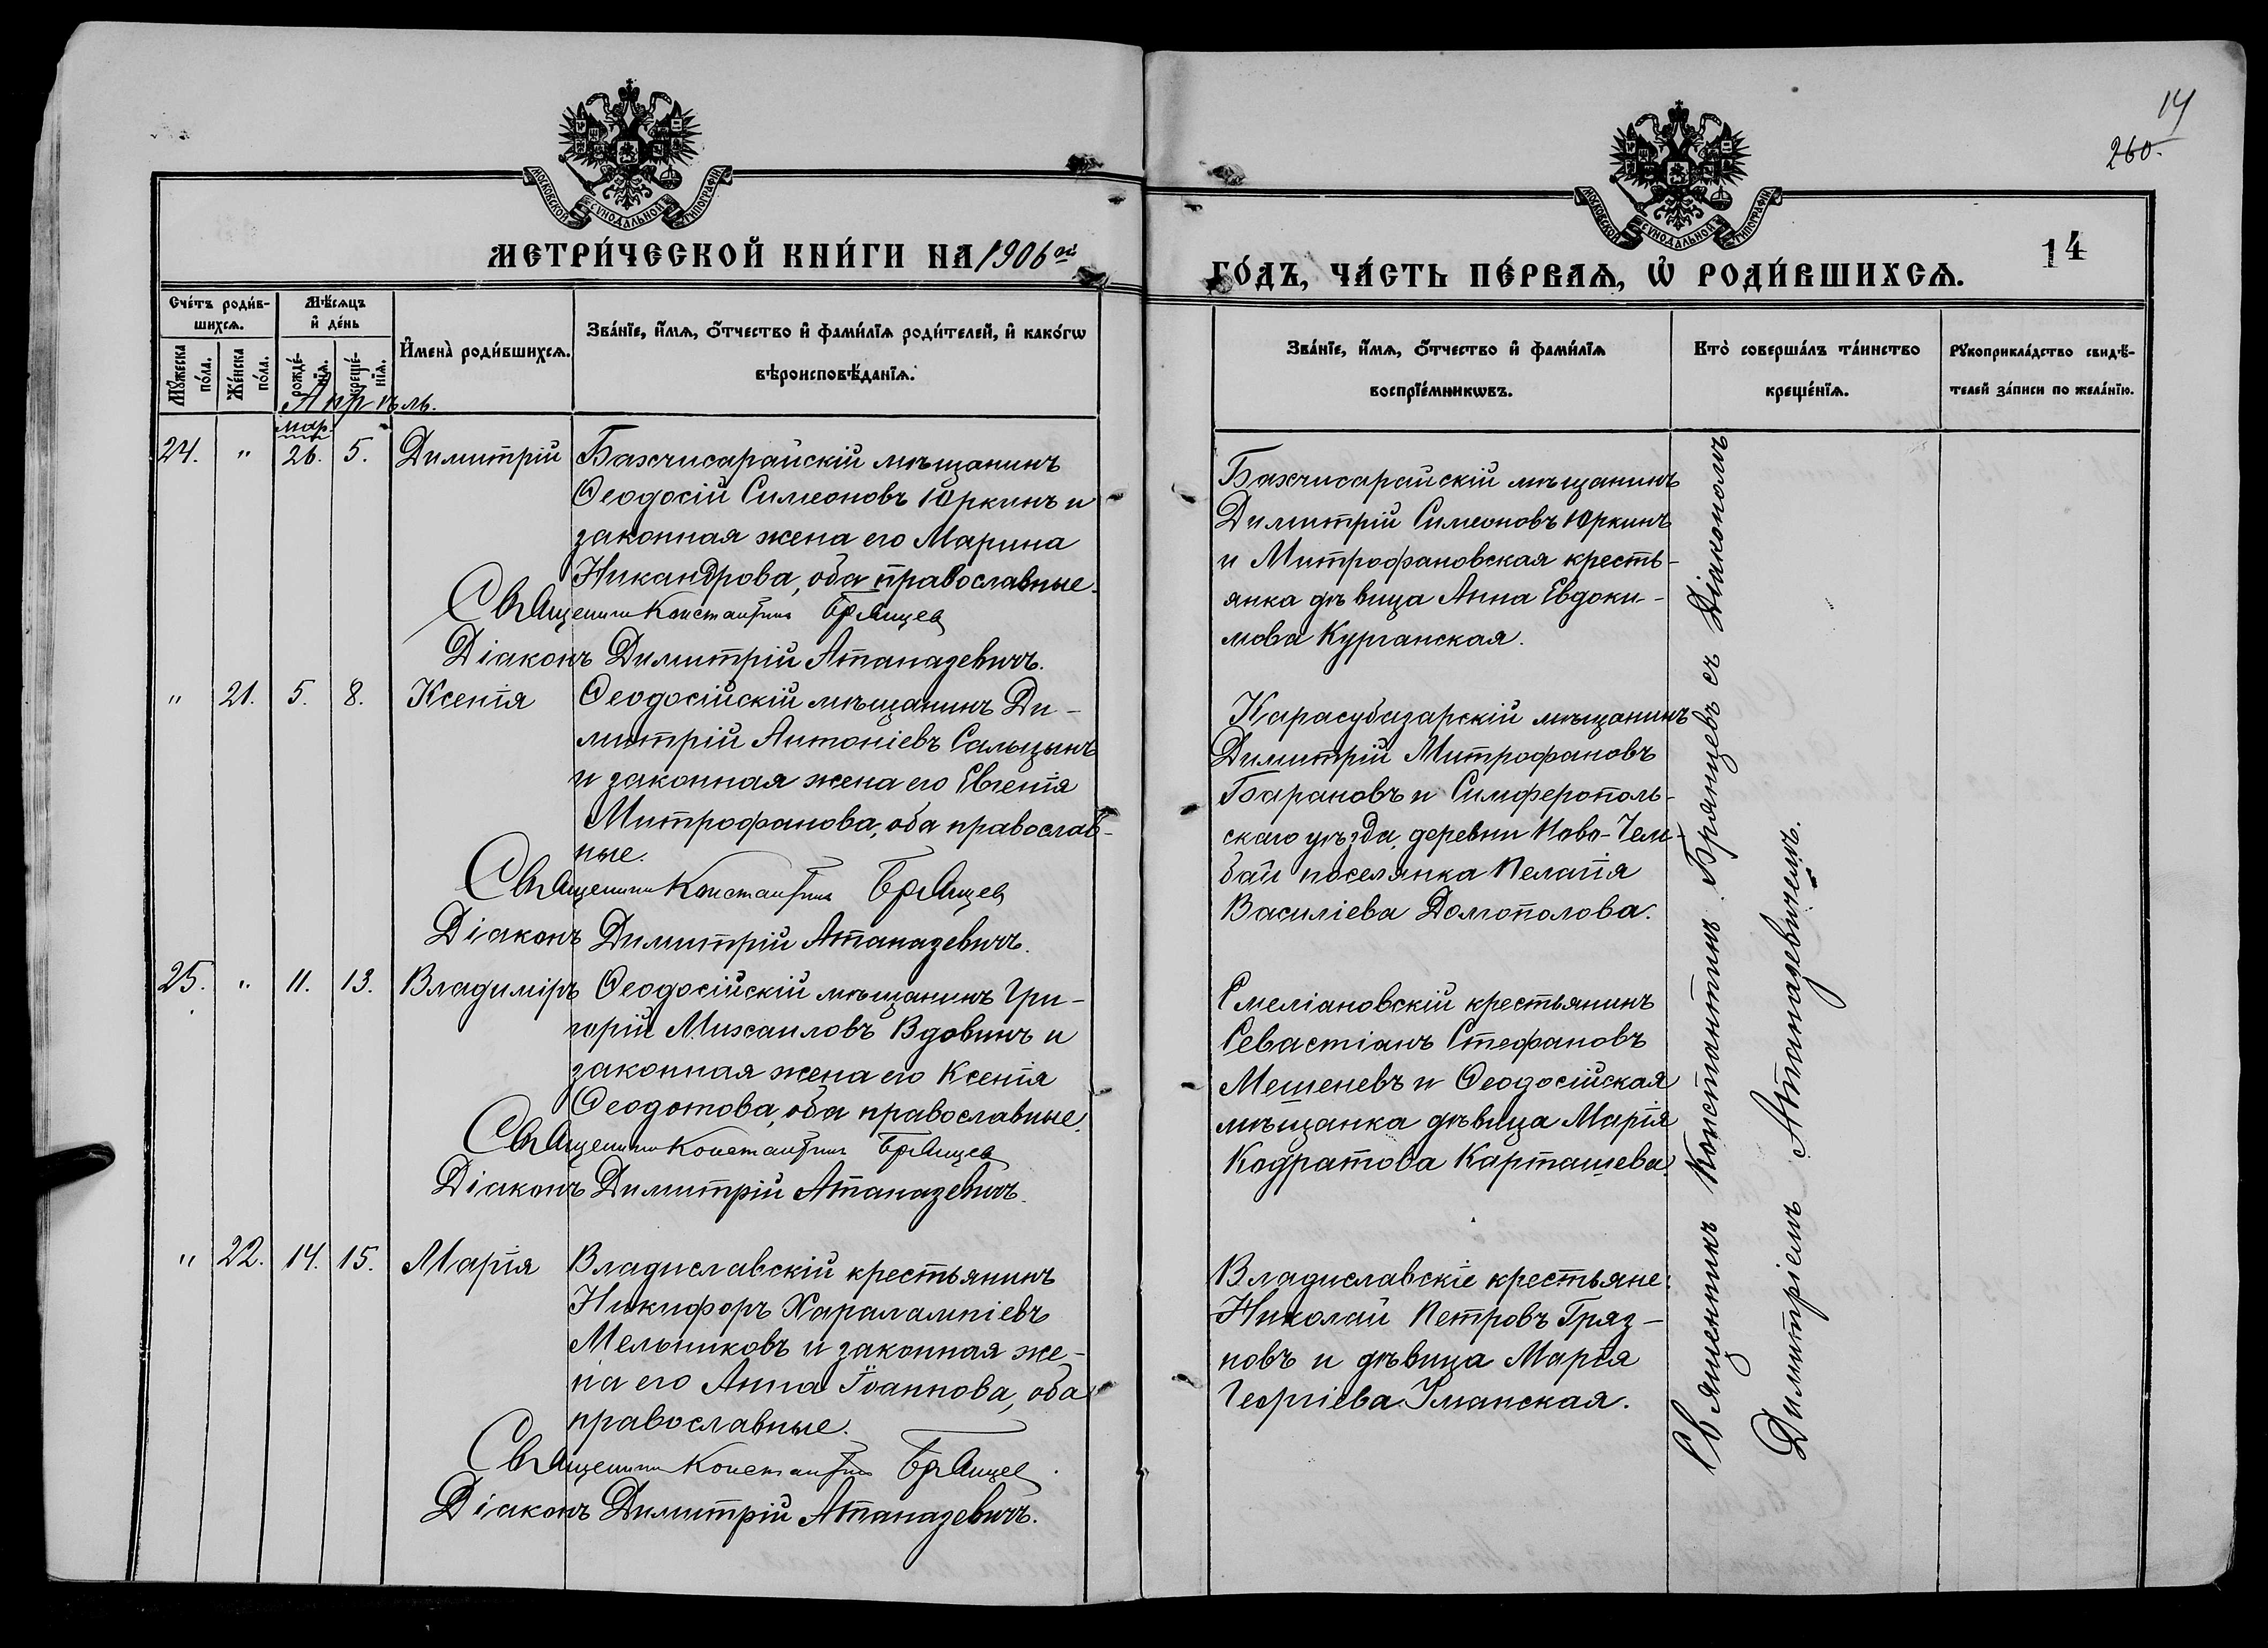 14
260.
МОСКОВСКОЙ СУНОДАЛЬНОЙ ТИПОГРАФІИ
МОСКОВСКОЙ СУНОДАЛЬНОЙ ТИПОГРАФІИ
МЕТРИ́ЧЕСКОЙ КНИ́ГИ НА 1906ой
ГО́ДЪ, ЧА́СТЬ ПЕ́РВАѦ, Ѡ҆ РОДИ́ВШИХСѦ.
14
Сче́тъ роди́в-
шихсѧ.
Мꙋ́жеска
по́ла.
Же́нска
по́ла.
Мѣ́сѧцъ
и҆ де́нь
рожде́-
нїѧ.
креще́-
нїѧ.
И҆мена̀ роди́вшихсѧ.
Зва́нїе, и҆́мѧ, ѻ҆́тчество и҆ фами́лїѧ роди́телей, и҆ како́гѡ
вѣроисповѣ́данїѧ.
Зва́нїе, и҆́мѧ, ѻ҆́тчество и҆ фами́лїѧ
воспрїе́мникѡвъ.
Кто̀ соверша́лъ та́инство
креще́нїѧ.
Рꙋкоприкла́дство свидѣ́-
телей за́писи по жела́нїю.
Апрѣль.
мар-
та
24. " 26. 5. Димитрій Бахчисарайскій мѣщанинъ
Ѳеодосій Симеоновъ Юркинъ и
законная жена его Марина
Никандрова, оба православные.
Священник Константин Брянцев
Діаконъ Димитрій Атаназевичъ.
Бахчисарайскій мѣщанинъ
Димитрій Симеоновъ Юркинъ
и Митрофановская кресть-
янка дѣвица Анна Евдоки-
мова Курганская.
" 21. 5. 8. Ксенія Ѳеодосійскій мѣщанинъ Ди-
митрій Антоніевъ Сальцынъ
и законная жена его Евгенія
Митрофанова, оба православ-
ные.
Священник Константин Брянцев
Діаконъ Димитрій Атаназевичъ.
Карасубазарскій мѣщанинъ
Димитрій Митрофановъ
Барановъ и Симферополь-
скаго уѣзда, деревни Ново-Чем-
бай поселянка Пелагія
Василіева Домополова.
25. " 11. 13. Владиміръ Ѳеодосійскій мѣщанинъ Гри-
горій Михаиловъ Вдовинъ и
законная жена его Ксенія
Ѳеодотова, оба православные.
Священник Константин Брянцев
Діаконъ Димитрій Атаназевичъ.
Емеліановскій крестьянинъ
Севастіанъ Стефановъ
Мешеневъ и Ѳеодосійская
мѣщанка дѣвица Марія
Кодратова Карташева.
" 22. 14. 15. Марія Владиславскій крестьянинъ
Никифоръ Харалампіевъ
Мельниковъ и законная же-
на его Анна Іоаннова, оба
православные.
Священник Константин Брянцев.
Діаконъ Димитрій Атаназевичъ.
Владиславскіе крестьяне:
Николай Петровъ Гряз-
новъ и дѣвица Марія
Георгіева Уманская.
Священникъ Константинъ Брянцевъ съ Діакономъ
Димитріемъ Атаназевичемъ.